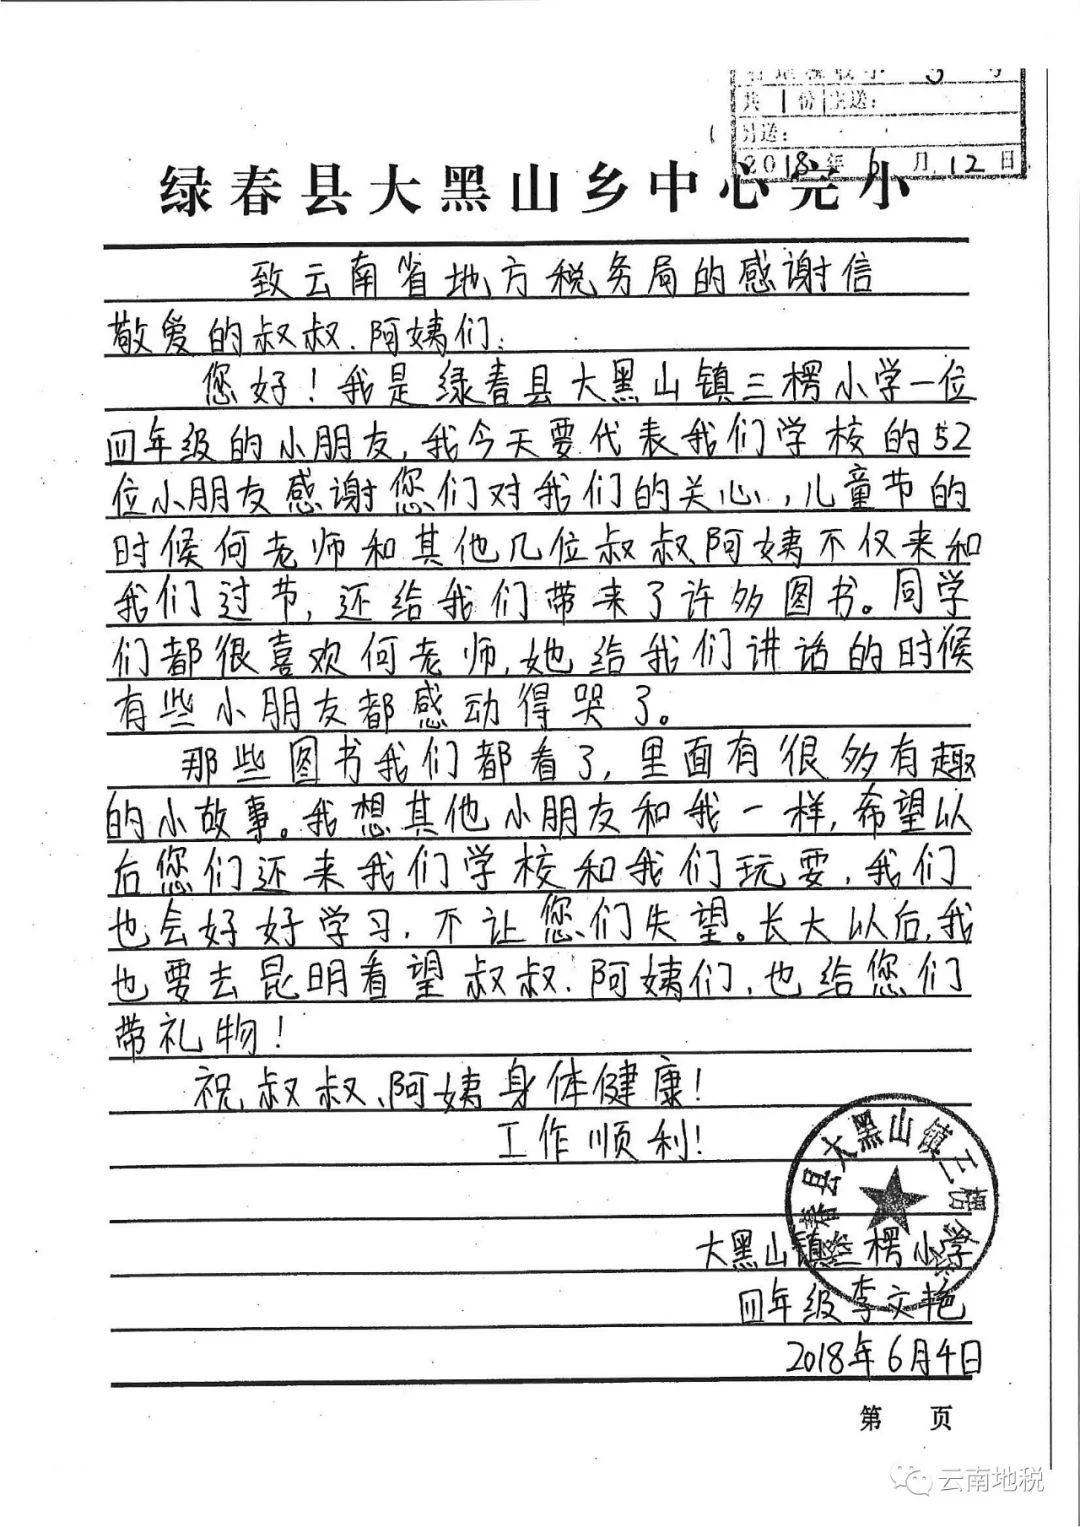 3
共1份 主送：
另送：
2018年6月12日
绿春县大黑山乡中心完小
致云南省地方税务局的感谢信
敬爱的叔叔、阿姨们：
您好！我是绿春县大黑山镇三楞小学一位
四年级的小朋友，我今天要代表我们学校的52
位小朋友感谢您们对我们的关心，儿童节的
时候何老师和其他几位叔叔、阿姨不仅来和
我们过节，还给我们带来了许多图书。同学
们都很喜欢何老师，她给我们讲话的时候
有些小朋友都感动得哭了。
那些图书我们都看了，里面有很多有趣
的小故事。我想其他小朋友和我一样，希望以
后您们还来我们学校和我们玩耍，我们
也会好好学习，不让您们失望。长大以后，我
也要去昆明看望叔叔、阿姨们，也给您们
带礼物！
祝叔叔、阿姨身体健康！
工作顺利！
绿春县大黑山镇三楞小学
大黑山镇三楞小学
四年级李文艳
2018年6月4日
第 页
云南地税